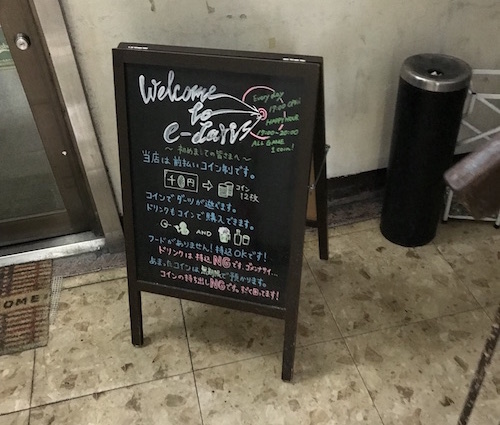 Welcome
to
e-darts
Everyday
17:00 OPEN
HAPPY HOUR
17:00~20:00
ALL GAME
1 coin!
~ 初めましての皆さまへ ~
当店は前払いコイン制です。
千円 → コイン
12枚
コインでダーツが遊べます。
ドリンクもコインで購入できます。
AND
フードがありません!持込OKです!
ドリンクは持込NGです。ゴメンナサイ...
あまったコインは無期限で預かります。
コインの持ち出しNGです。すごく困ってます!
OME